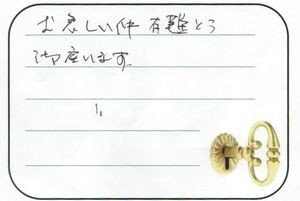 お忙しい仲 有難とう
御座います。